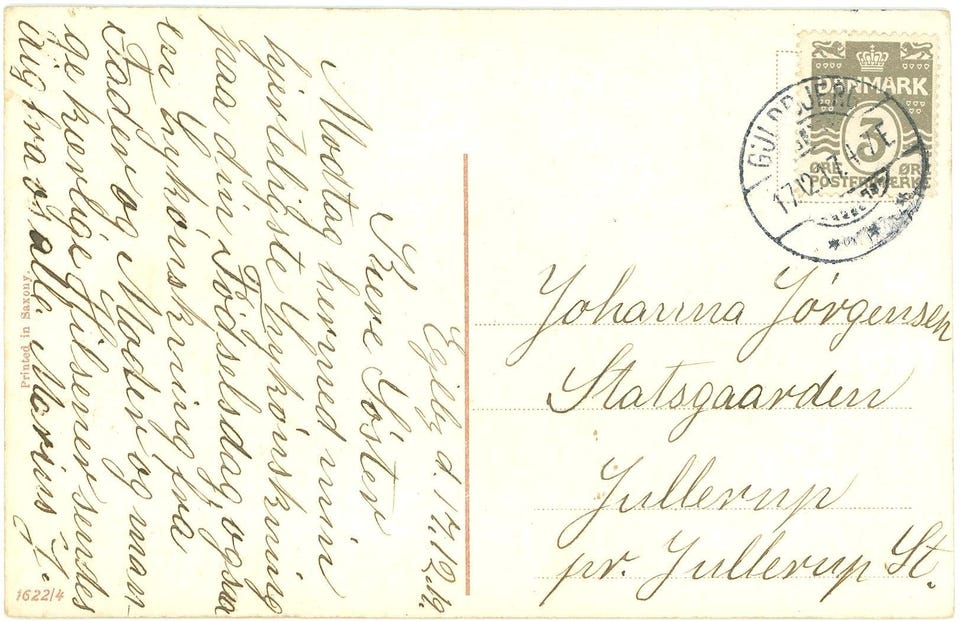 Ejlby d. 17.12.12.
Kære Söster
Modtag hermed min
hjerteligste Lykönskning
paa din Födselsdag, ogsaa
en Lykönskning fra
Fader og Moder og man-
ge kærlige Hjilsener sentes
dig fra os alle. Marius J.
Printed in Saxony.
1622/4
DANMARK
3
ØRE ØRE
POSTFRIMÆRKE
GULDBJERG
17.12.12. 4-7E
Johanna Jørgensen
Statsgaarden
Jullerup
pr. Jullerup St.